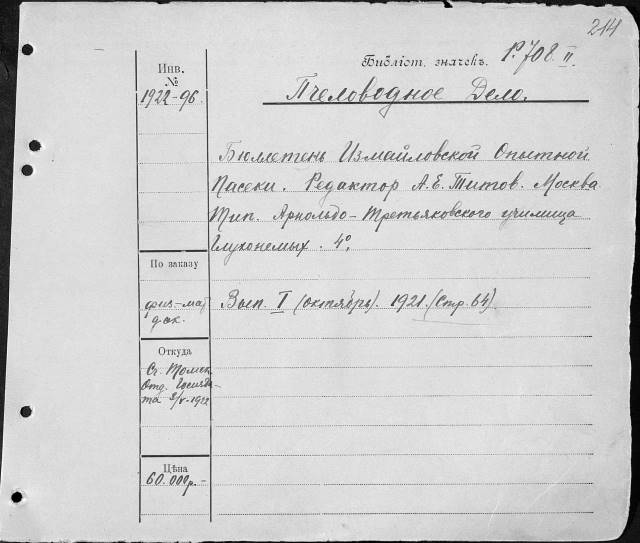 214
Библіот. значекъ. Р.708 II.
Пчеловодное Дело.
Инв.
№
1922-96.
Бюллетень Измайловской Опытной
Пасеки. Редактор А.Е. Титов. Москва
Тип. Арнольдо-Третьяковского училища
Глухонемых. 4°.
По заказу
физ-мат
фак.
Вып. I (октябрь). 1921. (Стр. 64)
Откуда
Ст. Томск
Отд. Госизда-
та 3/V-1922
Цѣна
60.000р.-